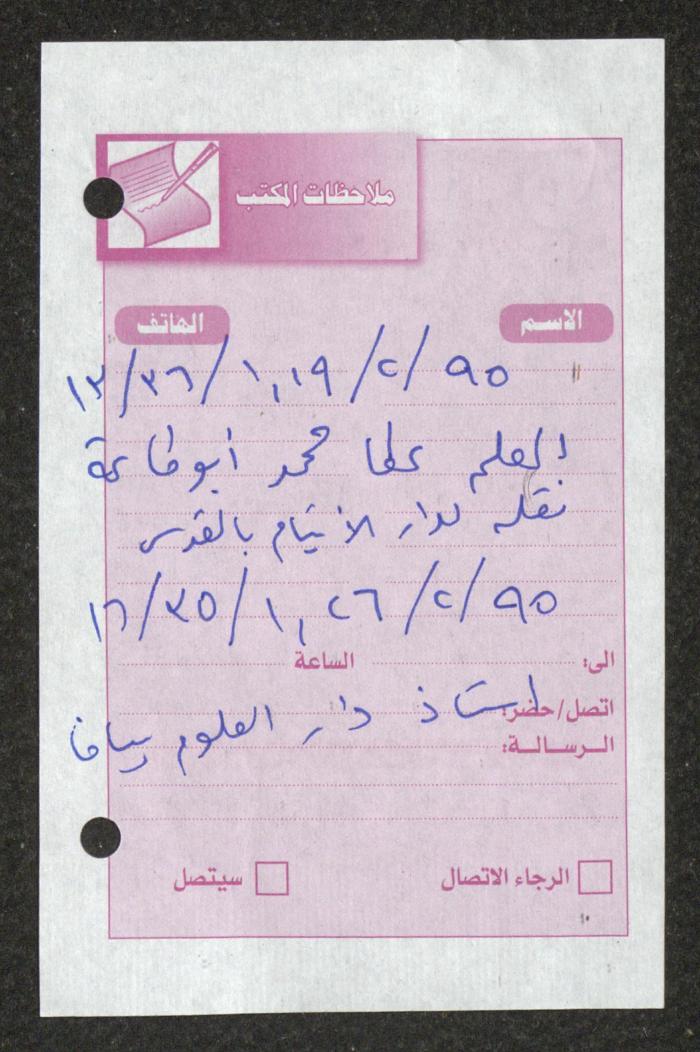 ملاحظات المكتب
الاسم الهاتف
١٣/٣٦/١,١٩/٢/٩٥
المعلم عطا محمد أبو
نقله لدار الأيتام بالقدس
١٦/٣٥/١,٢٦/٢/٩٥
الى: الساعة
اتصل/حضر: استاذ دار العلوم بيافا
الرسالة:
الرجاء الاتصال سيتصل